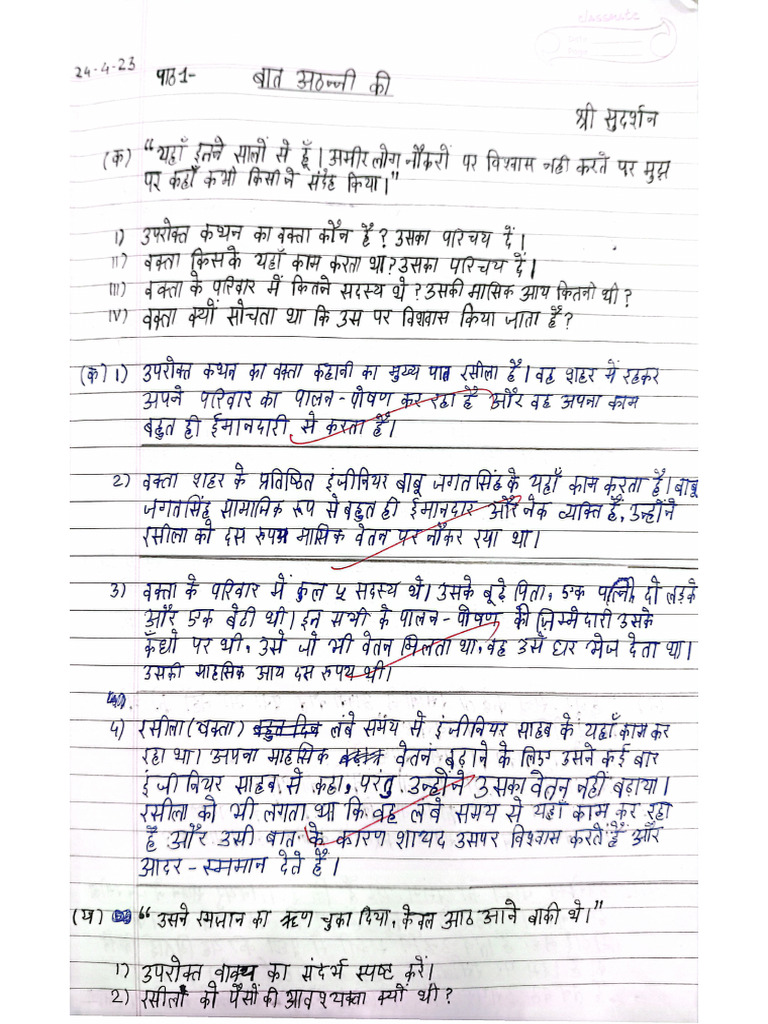 classmate
Date
Page
24-4-23
पाठ1- बात अठन्नी की
श्री सुदर्शन
(क) "यहाँ इतने सालों से हूँ। अमीर लोग नौकरों पर विश्वास नही करते पर मुझ
पर कहाँ कभी किसी ने संदेह किया।"
I) उपरोक्त कथन का वक्ता कौन है? उसका परिचय दें।
II) वक्ता किसके यहाँ काम करता था? उसका परिचय दें।
III) वक्ता के परिवार में कितने सदस्य थे? उसकी मासिक आय कितनी थी?
IV) वक्ता क्यों सोचता था कि उस पर विश्वास किया जाता है?
(क) 1) उपरोक्त कथन का वक्ता कहानी का मुख्य पात्र रसीला है। वह शहर में रहकर
अपने परिवार का पालन-पोषण कर रहा है और वह अपना काम
बहुत ही ईमानदारी से करता है।
2) वक्ता शहर के प्रतिष्ठित इंजीनियर बाबू जगतसिंह के यहाँ काम करता है। बाबू
जगतसिंह सामाजिक रूप से बहुत ही ईमानदार और नेक व्यक्ति है, उन्होंने
रसीला को दस रुपए मासिक वेतन पर नौकर रखा था।
3) वक्ता के परिवार में कुल ५ सदस्य थे। उसके बूढ़े पिता, एक पत्नि, दो लड़के
और एक बेटी थी। इन सभी के पालन-पोषण की ज़िम्मेदारी उसके
कँधो पर थी, उसे जो भी वेतन मिलता था, वह उसे घर भेज देता था।
उसकी माहसिक आय दस रुपय थी।
4) रसीला (वक्ता) बहुत दिन लंबे समय से इंजीनियर साहब के यहाँ काम कर
रहा था। अपना माहसिक वेतन बढ़ाने के लिए उसने कई बार
इंजीनियर साहब से कहा, परंतु उन्होंने उसका वेतन नहीं बढ़ाया।
रसीला को भी लगता था कि वह लंबे समय से यहाँ काम कर रहा
है और उसी बात के कारण शायद उसपर विश्वास करते हैं और
आदर-सम्मान देते हैं।
(ख) "उसने रमजान का ऋण चुका दिया, केवल आठ आने बाकी थे।"
1) उपरोक्त वाक्य का संदर्भ स्पष्ट करें।
2) रसीला को पैसों की आवश्यक्ता क्यों थी?